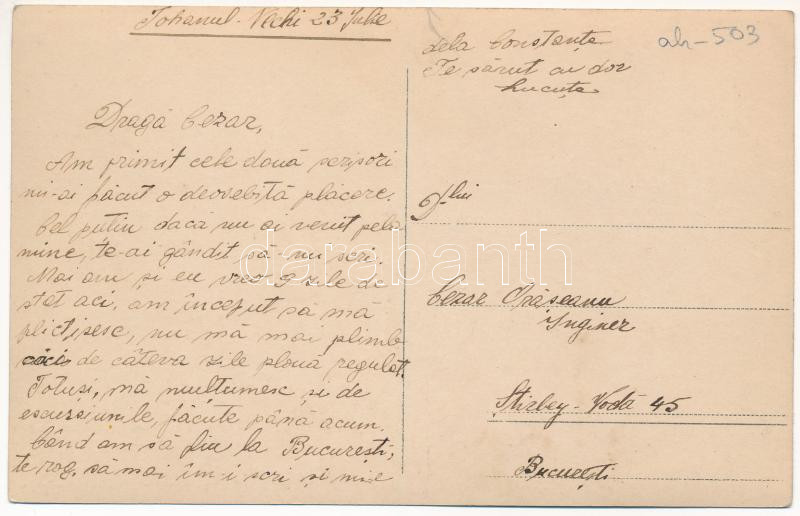 Tohanul-Vechi 23 Iulie
Dragă Cezar,
Am primit cele două scrisori
mi-ai făcut o deosebită plăcere.
Cel puțin dacă nu ai venit pela
mine, te-ai gândit să-mi scri.
Mai am și eu vreo 9 zile de
stat aci, am început să mă
plictisesc, nu mă mai plimb
căci de câteva zile plouă regulat.
Totuși, mă mulțumesc și de
escursiunile, făcute până acum.
Când am să fiu la București,
te rog, să mai îm-i scri și mie
dela Constanța
Te sărut cu dor
Lucuța
ah-503
D-lui
Cezar Orășeanu
Inginer
Știrbey-Vodă 45
București
darabanth